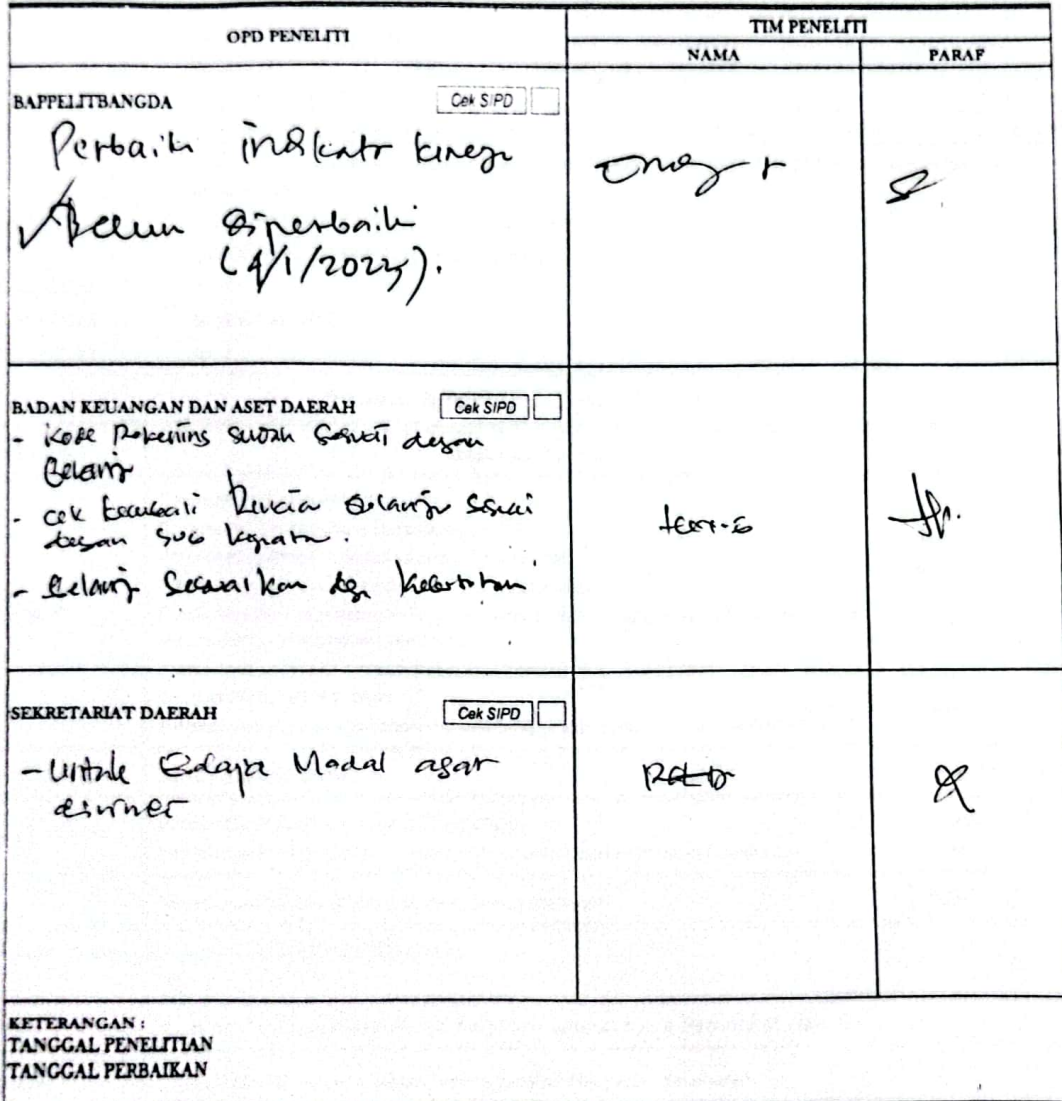 OPD PENELITI
TIM PENELITI
NAMA
PARAF
BAPPELITBANGDA
Cek SIPD
Perbaiki indikator kinerja
Belum diperbaiki
BADAN KEUANGAN DAN ASET DAERAH
Cek SIPD
- Kode Rekening sudah sesuai dengan
Belanja
- cek kembali Rincian Belanja sesuai
dengan sub kegiatan.
- Belanja Sesuaikan dgn Kebutuhan
SEKRETARIAT DAERAH
Cek SIPD
- Untuk Belanja Modal agar
dirinci
KETERANGAN :
TANGGAL PENELITIAN
TANGGAL PERBAIKAN